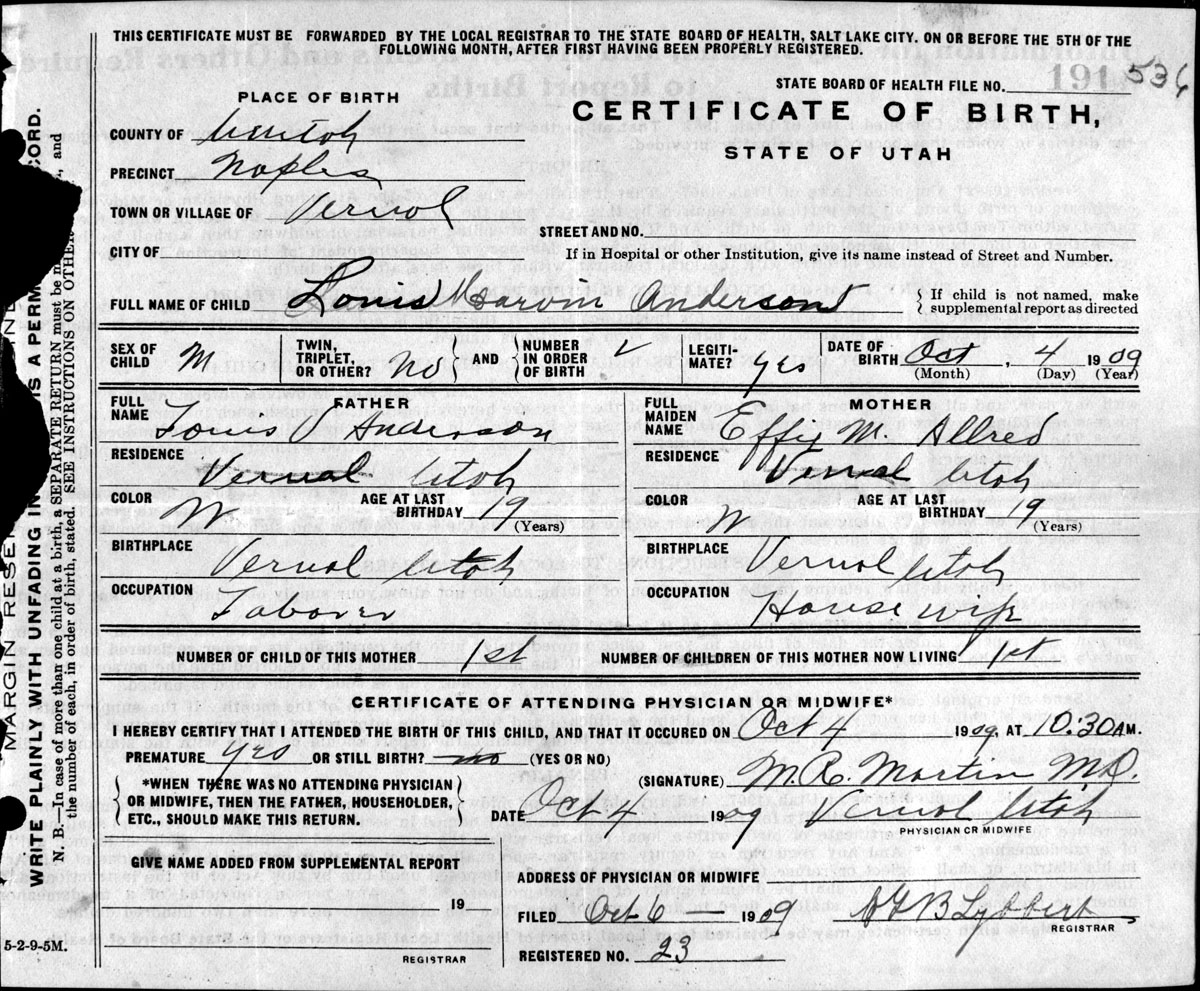 THIS CERTIFICATE MUST BE FORWARDED BY THE LOCAL REGISTRAR TO THE STATE BOARD OF HEALTH, SALT LAKE CITY. ON OR BEFORE THE 5TH OF THE
FOLLOWING MONTH, AFTER FIRST HAVING BEEN PROPERLY REGISTERED.
STATE BOARD OF HEALTH FILE NO. 536
PLACE OF BIRTH
CERTIFICATE OF BIRTH,
STATE OF UTAH
COUNTY OF
PRECINCT Naples
TOWN OR VILLAGE OF Vernal
STREET AND NO.
CITY OF
If in Hospital or other Institution, give its name instead of Street and Number.
FULL NAME OF CHILD Louis Marvin Anderson
If child is not named, make
supplemental report as directed
SEX OF CHILD M
TWIN, TRIPLET, OR OTHER? No
AND
NUMBER IN ORDER OF BIRTH
LEGITI-MATE? Yes
DATE OF BIRTH Oct, 4 1909
(Month) (Day) (Year)
FATHER
FULL NAME Louis O Anderson
RESIDENCE Vernal Utah
COLOR W
AGE AT LAST BIRTHDAY 19
(Years)
BIRTHPLACE Vernal Utah
OCCUPATION Laborer
MOTHER
FULL MAIDEN NAME Effy M. Allred
RESIDENCE Vernal Utah
COLOR W
AGE AT LAST BIRTHDAY 19
(Years)
BIRTHPLACE Vernal Utah
OCCUPATION House wife
NUMBER OF CHILD OF THIS MOTHER 1st
NUMBER OF CHILDREN OF THIS MOTHER NOW LIVING 1st
CERTIFICATE OF ATTENDING PHYSICIAN OR MIDWIFE*
I HEREBY CERTIFY THAT I ATTENDED THE BIRTH OF THIS CHILD, AND THAT IT OCCURED ON Oct 4 1909, AT 10:30 AM.
PREMATURE yes OR STILL BIRTH? no (YES OR NO)
*WHEN THERE WAS NO ATTENDING PHYSICIAN
OR MIDWIFE, THEN THE FATHER, HOUSEHOLDER,
ETC., SHOULD MAKE THIS RETURN.
(SIGNATURE) M.R. Martin M.D.
DATE Oct 4 1909 Vernal Utah
PHYSICIAN OR MIDWIFE
GIVE NAME ADDED FROM SUPPLEMENTAL REPORT
19
REGISTRAR
ADDRESS OF PHYSICIAN OR MIDWIFE
FILED Oct 6 — 1909 Lybbert
REGISTRAR
REGISTERED NO. 23
5-2-9-5M.
MARGIN
WRITE PLAINLY WITH UNFADING IS A PERM CORD.
N. B.—In case of more than one child at a birth, a SEPARATE RETURN must be and
the number of each, in order of birth, stated. SEE INSTRUCTIONS ON OTHER